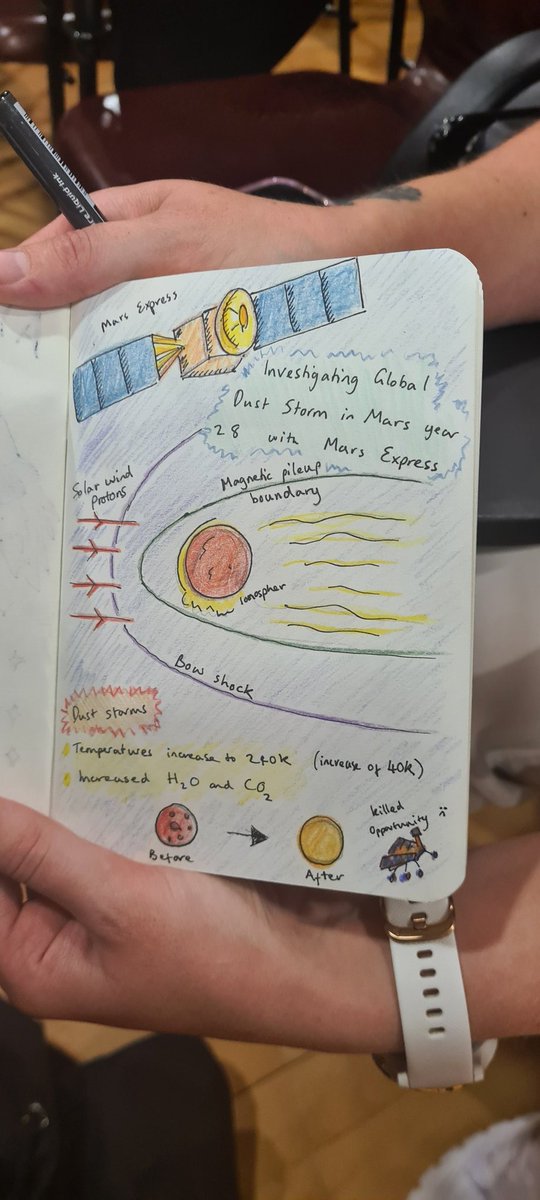 re Liquid Ink
Mars Express
Investigating Global
Dust Storm in Mars year
28 with Mars Express
Solar wind
protons
Magnetic pileup
boundary
ionospher
Bow shock
Dust storms
Temperatures increase to 240k (increase of 40k)
Increased H₂O and CO₂
Before
After
killed
Opportunity :(